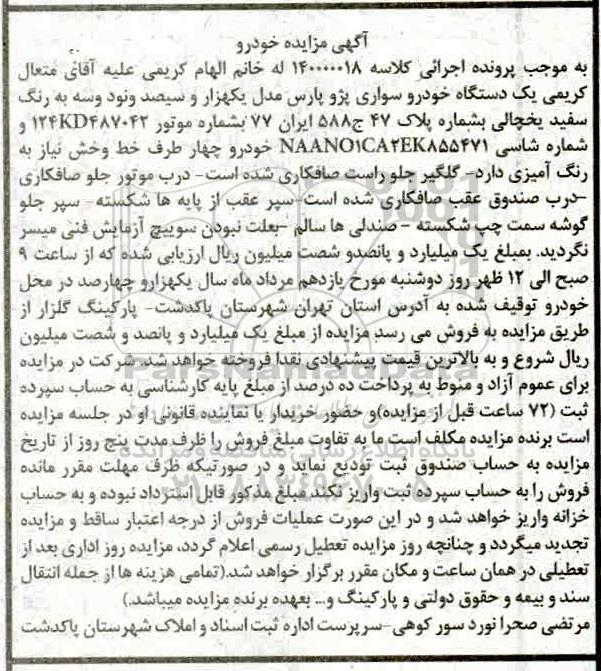 آگهی مزایده خودرو
به موجب پرونده اجرائی کلاسه ۱۴۰۰۰۰۰۱۸ له خانم الهام کریمی علیه آقای متعال
کریمی یک دستگاه خودرو سواری پژو پارس مدل یکهزار و سیصد ونود وسه به رنگ
سفید یخچالی بشماره پلاک ۴۷ ج۵۸۸ ایران ۷۷ بشماره موتور ۱۲۴KD۴۸۷۰۴۲ و
شماره شاسی NAANO۱CA۲EK۸۵۵۴۷۱ خودرو چهار طرف خط وخش نیاز به
رنگ آمیزی دارد- گلگیر جلو راست صافکاری شده است- درب موتور جلو صافکاری
-درب صندوق عقب صافکاری شده است-سپر عقب از پایه ها شکسته- سپر جلو
گوشه سمت چپ شکسته - صندلی ها سالم -بعلت نبودن سوییچ آزمایش فنی میسر
نگردید. بمبلغ یک میلیارد و پانصدو شصت میلیون ریال ارزیابی شده که از ساعت ۹
صبح الی ۱۲ ظهر روز دوشنبه مورخ یازدهم مرداد ماه سال یکهزارو چهارصد در محل
خودرو توقیف شده به آدرس استان تهران شهرستان پاکدشت- پارکینگ گلزار از
طریق مزایده به فروش می رسد مزایده از مبلغ یک میلیارد و پانصد و شصت میلیون
ریال شروع و به بالاترین قیمت پیشنهادی نقدا فروخته خواهد شد. شرکت در مزایده
برای عموم آزاد و منوط به پرداخت ده درصد از مبلغ پایه کارشناسی به حساب سپرده
ثبت (۷۲ ساعت قبل از مزایده)و حضور خریدار یا نماینده قانونی او در جلسه مزایده
است برنده مزایده مکلف است ما به تفاوت مبلغ فروش را ظرف مدت پنج روز از تاریخ
مزایده به حساب صندوق ثبت تودیع نماید و در صورتیکه ظرف مهلت مقرر مانده
فروش را به حساب سپرده ثبت واریز نکند مبلغ مذکور قابل استرداد نبوده و به حساب
خزانه واریز خواهد شد و در این صورت عملیات فروش از درجه اعتبار ساقط و مزایده
تجدید میگردد و چنانچه روز مزایده تعطیل رسمی اعلام گردد، مزایده روز اداری بعد از
تعطیلی در همان ساعت و مکان مقرر برگزار خواهد شد.(تمامی هزینه ها از جمله انتقال
سند و بیمه و حقوق دولتی و پارکینگ و... بعهده برنده مزایده میباشد.)
مرتضی صحرا نورد سور کوهی-سرپرست اداره ثبت اسناد و املاک شهرستان پاکدشت